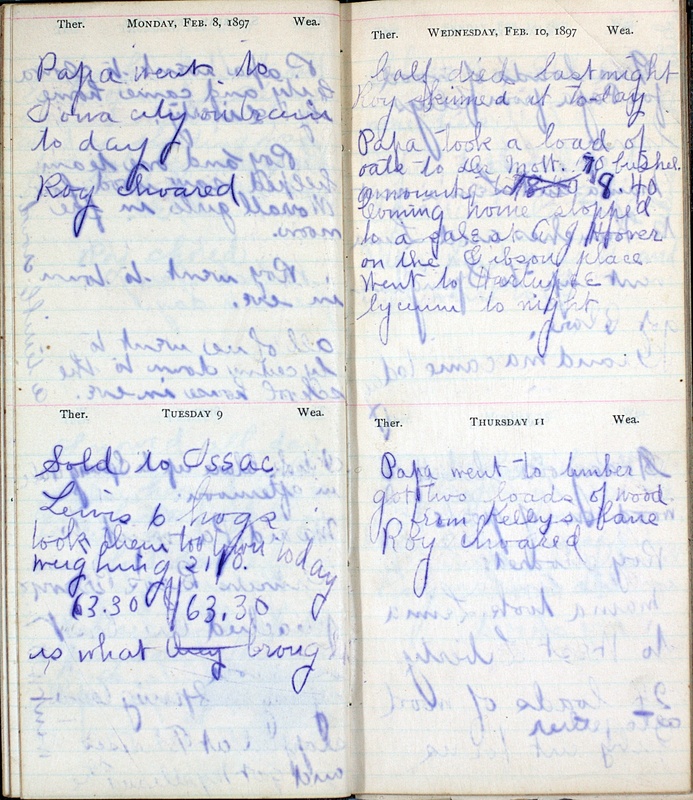 Ther. MONDAY, FEB. 8, 1897 Wea.
Papa went to
Iowa city on train
to day
Roy choared
Ther. TUESDAY 9 Wea.
Sold to Issac
Lewis 6 hogs
took them to town today
weighing 2110.
63.30 63.30
is what they broug
Ther. WEDNESDAY, FEB. 10, 1897 Wea.
Calf died last night
Roy skinned it today
Papa took a load of
oats to De Mott. 70 bushel.
amounting to 8.40
Coming home stopped
to a sale at Hoover
on the Gibson place
Went to
lyceum to night
Ther. THURSDAY 11 Wea.
Papa went to timber
got two loads of wood
from Kellys place
Roy choared